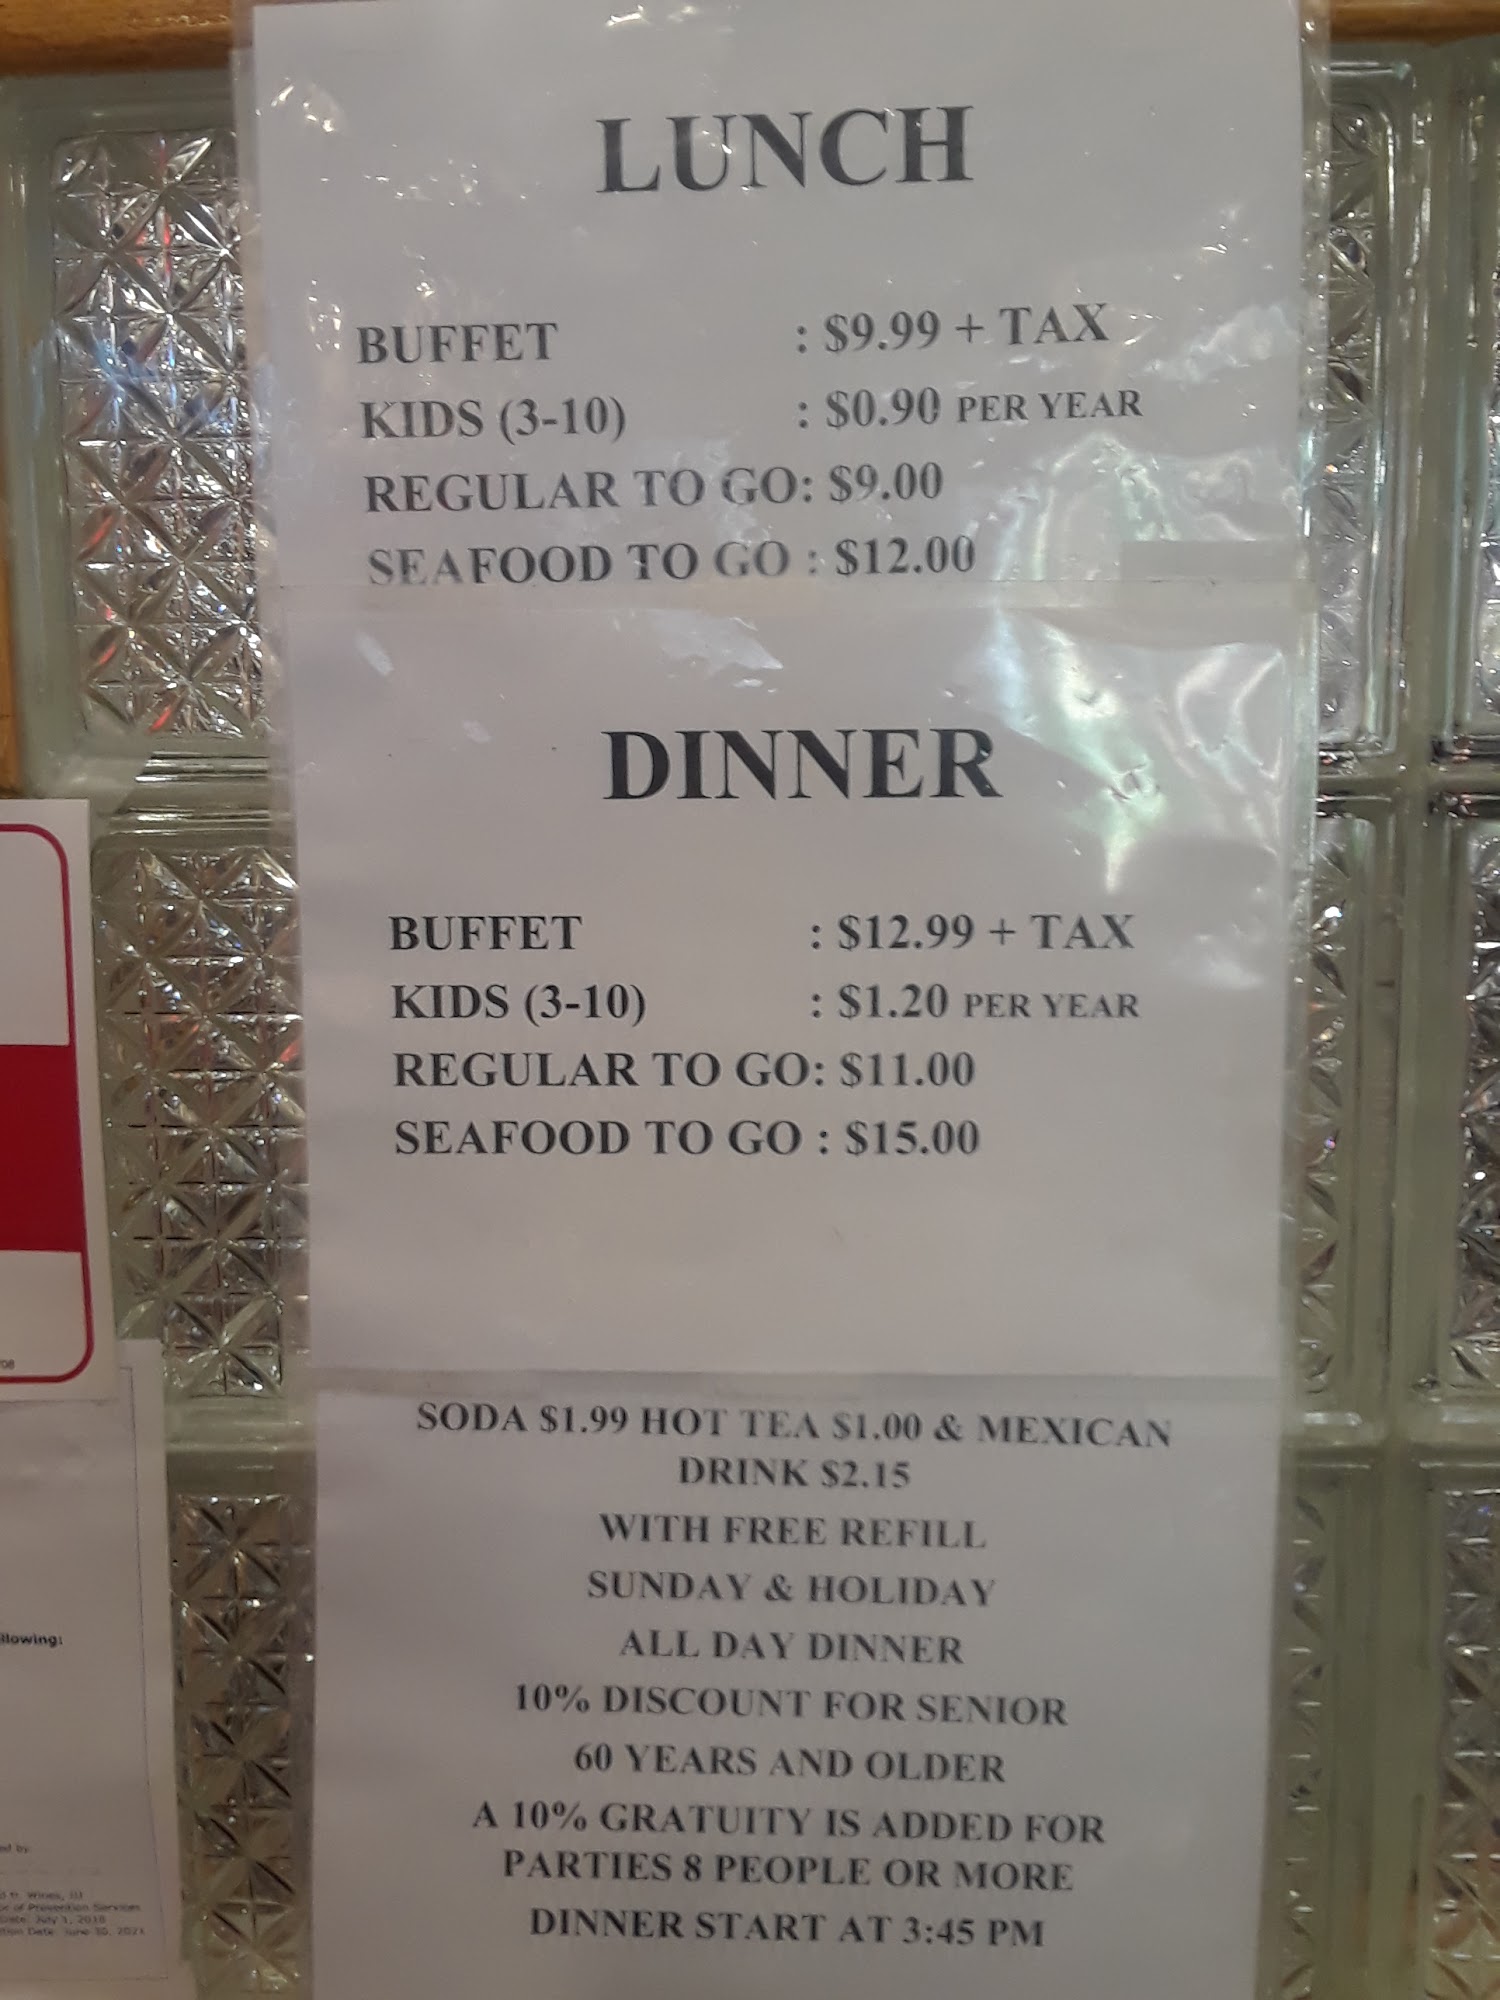 LUNCH
BUFFET : $9.99 + TAX
KIDS (3-10) : $0.90 PER YEAR
REGULAR TO GO: $9.00
SEAFOOD TO GO : $12.00
DINNER
BUFFET : $12.99 + TAX
KIDS (3-10) : $1.20 PER YEAR
REGULAR TO GO: $11.00
SEAFOOD TO GO : $15.00
SODA $1.99 HOT TEA $1.00 & MEXICAN
DRINK $2.15
WITH FREE REFILL
SUNDAY & HOLIDAY
ALL DAY DINNER
10% DISCOUNT FOR SENIOR
60 YEARS AND OLDER
A 10% GRATUITY IS ADDED FOR
PARTIES 8 PEOPLE OR MORE
DINNER START AT 3:45 PM
llowing:
ed by
Wines, III
of Prevention Services
July 1, 2018
Date: June 30, 2021